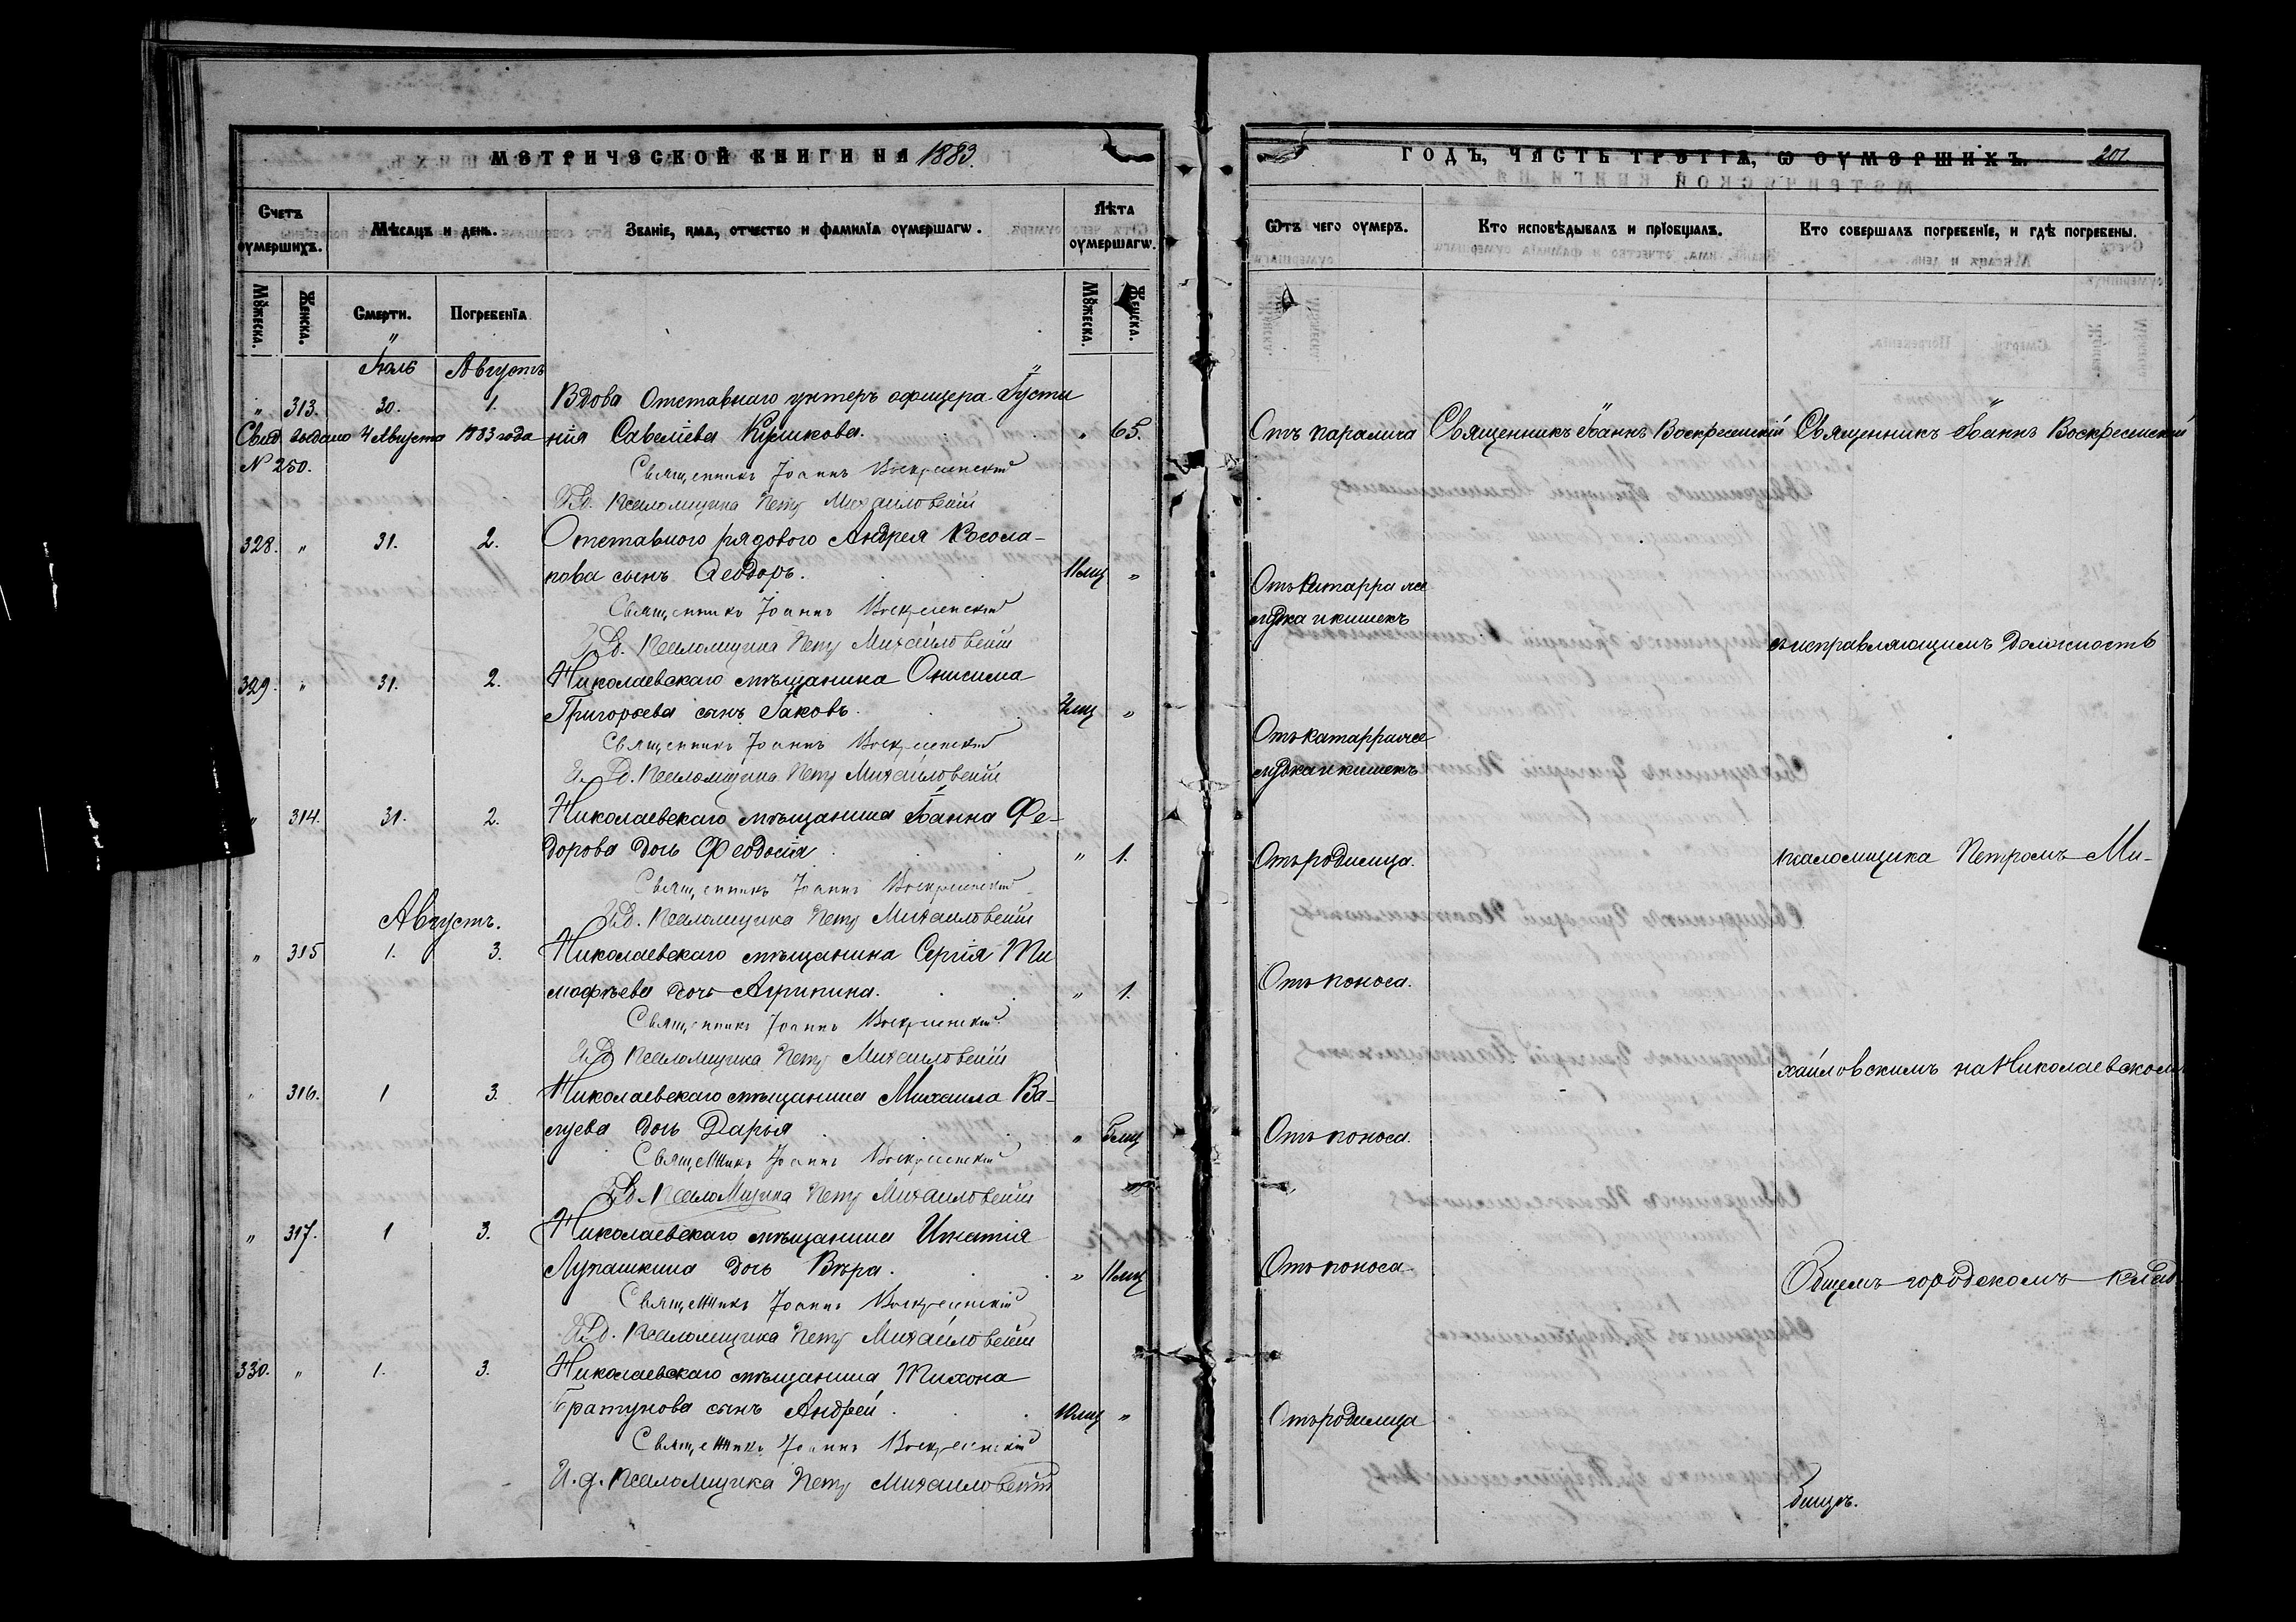 МЕТРИЧЕСКОЙ КНИГИ НА 1883.
Счетъ оумершихъ.
Мѣсяцъ и день.
Званїе, имя, отчество и фамилїя оумершагѡ.
Лѣта оумершагѡ.
Мꙋжеска.
Женска.
Смерти.
Погребенїя
Мꙋжеска.
Женска.
Іюль Августъ
" 313. 30. 1. Вдова Отставнаго унтеръ офицера Іусти
Свид. выдано 4 Августа 1883 года
нія Савеліева . " 65.
№ 250.
Священникъ Іоаннъ Воскресенскій
И. д. Псаломщика Петръ Михайловскій
328. " 31. 2. Отставного рядового Андрея Косола-
пова сынъ Ѳеодоръ. 11 мц "
Священникъ Іоаннъ Воскресенскій
И. д. Псаломщика Петръ Михайловскій
329. " 31. 2. Николаевскаго мѣщанина Онисима
Григорьева сынъ Іаковъ. мц "
Священникъ Іоаннъ Воскресенскій
И. д. Псаломщика Петръ Михайловскій
" 314. 31. 2. Николаевскаго мѣщанина Іоанна Фе-
дорова дочь Феодосія " 1.
Священникъ Іоаннъ Воскресенскій
И. д. Псаломщика Петръ Михайловскій
Августъ.
" 315 1. 3. Николаевскаго мѣщанина Сергія Ти
мофѣева дочь Агрипина. " 1.
Священникъ Іоаннъ Воскресенскій
И. д. Псаломщика Петръ Михайловскій
" 316. 1 3. Николаевскаго мѣщанина Михаила Ва-
луева дочь Дарья " 5 мц
Священникъ Іоаннъ Воскресенскій
И. д. Псаломщика Петръ Михайловскій
" 317. 1 3. Николаевскаго мѣщанина Игнатія
Лупашкина дочь Вѣра. " 11 мц
Священникъ Іоаннъ Воскресенскій
И. д. Псаломщика Петръ Михайловскій
330. " 1. 3. Николаевскаго мѣщанина Тихона
Братунова сынъ Андрей. 10 мц "
Священникъ Іоаннъ Воскресенскій
И. д. Псаломщика Петръ Михайловскій
ГОДЪ, ЧАСТЬ ТРЕТІЯ, Ѡ ОУМЕРШИХЪ. 201.
Ѿтъ чего оумеръ.
Кто исповѣдывалъ и прїобщалъ.
Кто совершалъ погребенїе, и гдѣ погребены.
Отъ паралича Священникъ Іоаннъ Воскресенскій Священникъ Іоаннъ Воскресенскій
Отъ катарра же
лудка и кишекъ
съ исправляющимъ должность
Отъ катарра же
лудка и кишекъ
Отъ родимца.
псаломщика Петромъ Ми-
Отъ поноса.
хайловскимъ на Николаевскомъ
Отъ поноса.
Отъ поноса.
Общемъ городскомъ клад
Отъ родимца
бищѣ.